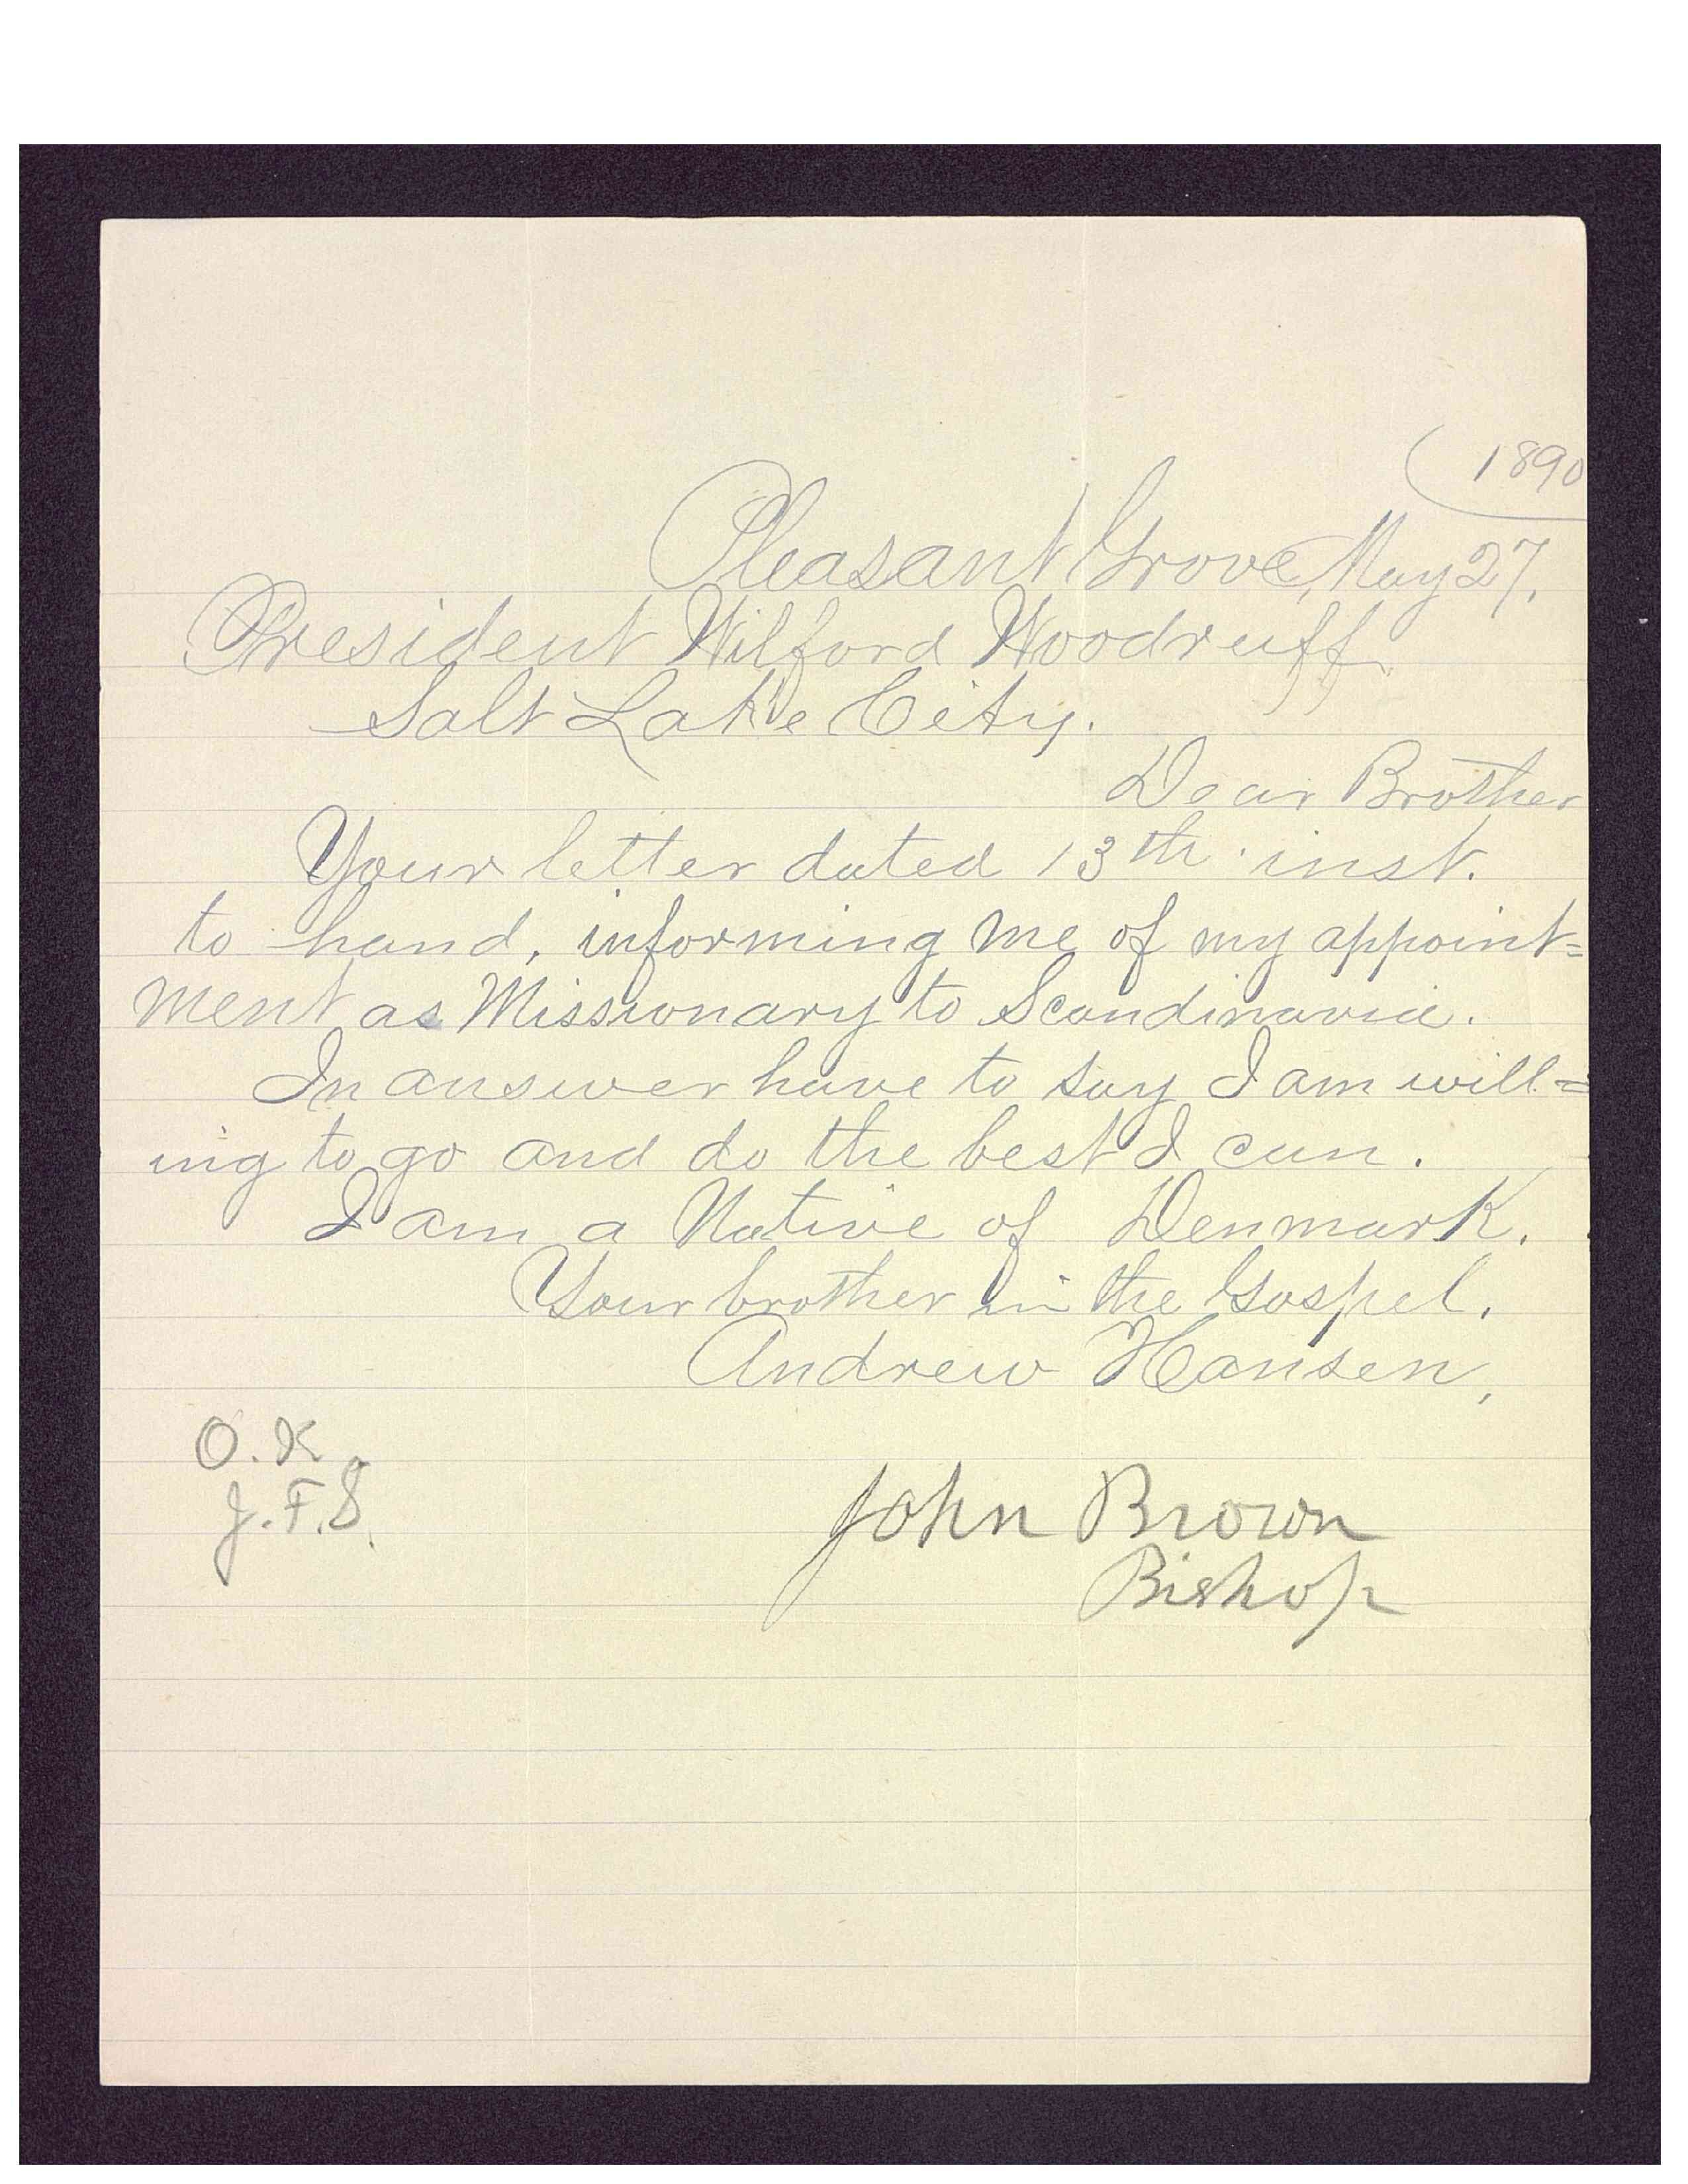 1890
Pleasant Grove, May 27.
President Wilford Woodruff
Salt Lake City.
Dear Brother
Your letter dated 13th. inst.
to hand, informing me of my appoint=
ment as Missionary to Scandinavia.
In answer have to say I am will=
ing to go and do the best I can.
I am a Native of Denmark.
Your brother in the Gospel.
Andrew Hansen,
O.K.
J.F.S.
John Brown
Bishop